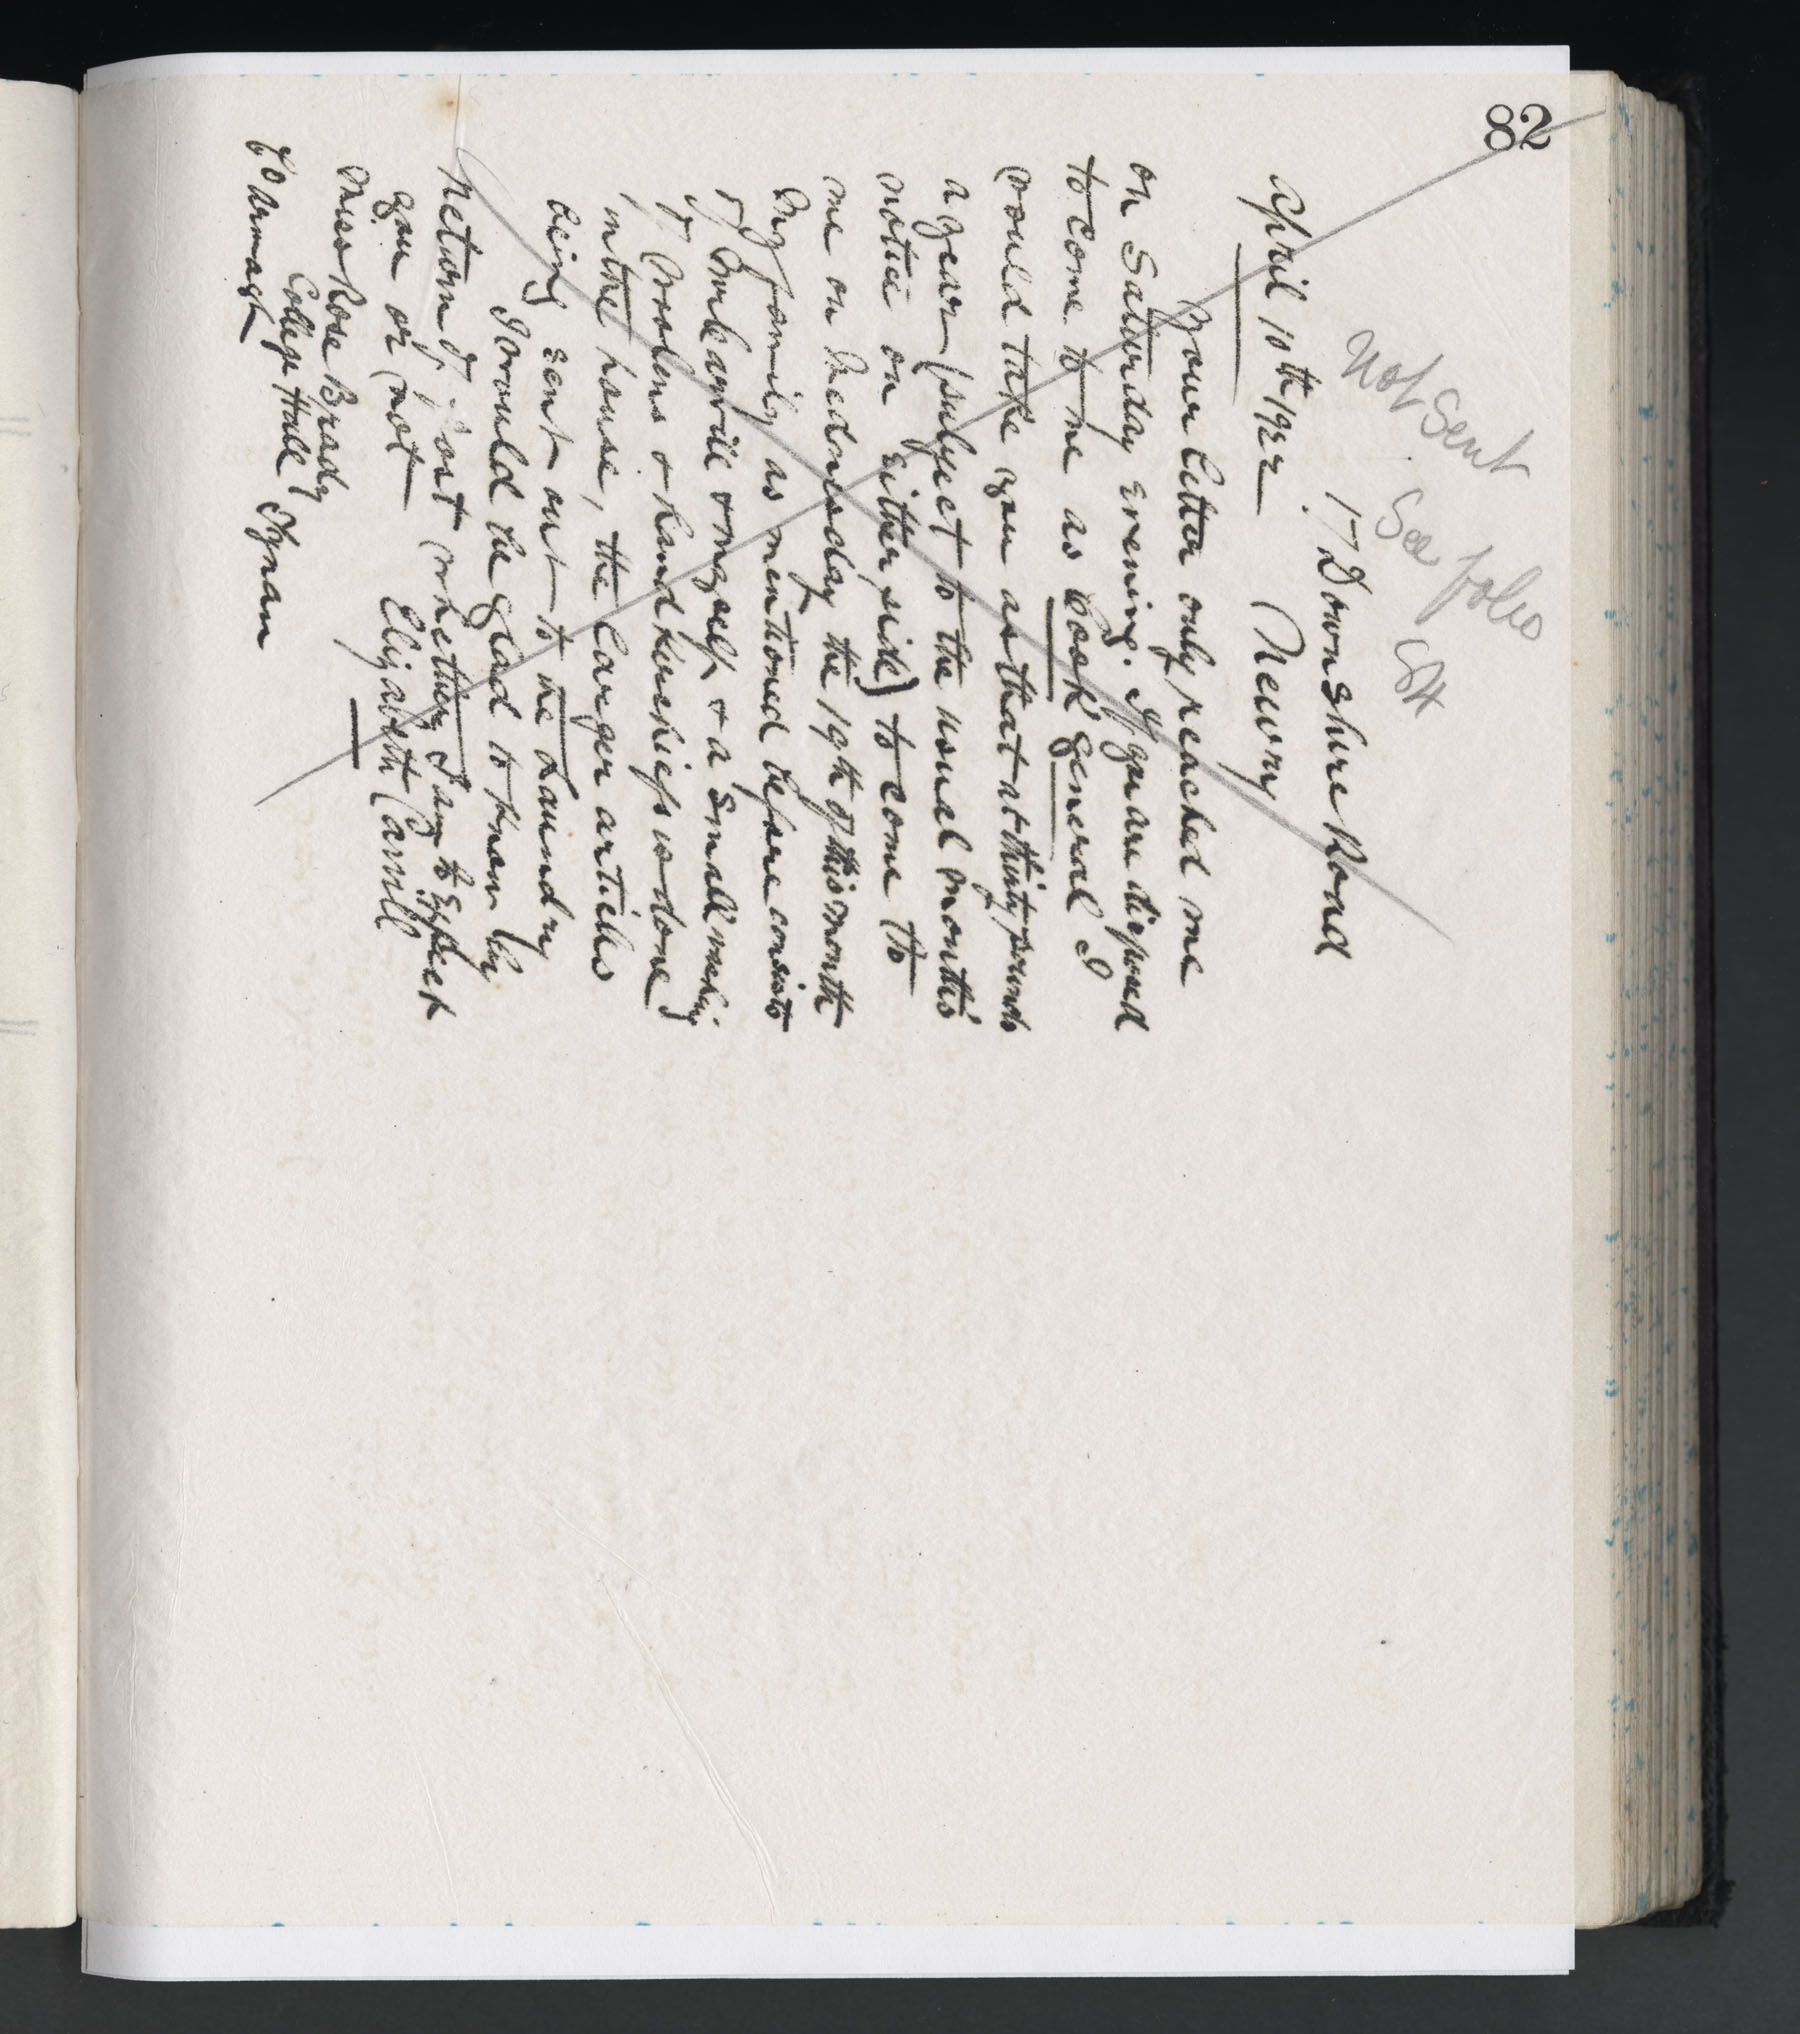 82
Not sent
See folio
84
17 Downshire Road
April 10th 1922 Newry
Your letter only reached me
on Saturday evening. If you are disposed
to come to me as Cook general I
would take you as that at thirty pounds
a year (subject to the usual months'
notice on either side) to come to
me on Wednesday the 19th of this month
My family as mentioned before consists
of Mr Carvill & myself & a small washing
of woolens & handkerchiefs is done
in the house, the larger articles
being sent out to the Laundry
I would be glad to know by
return of post whether I am to expect
you or not
Elizabeth Carvill
Miss Rose Brady
College Hall Tynan
Co Armagh